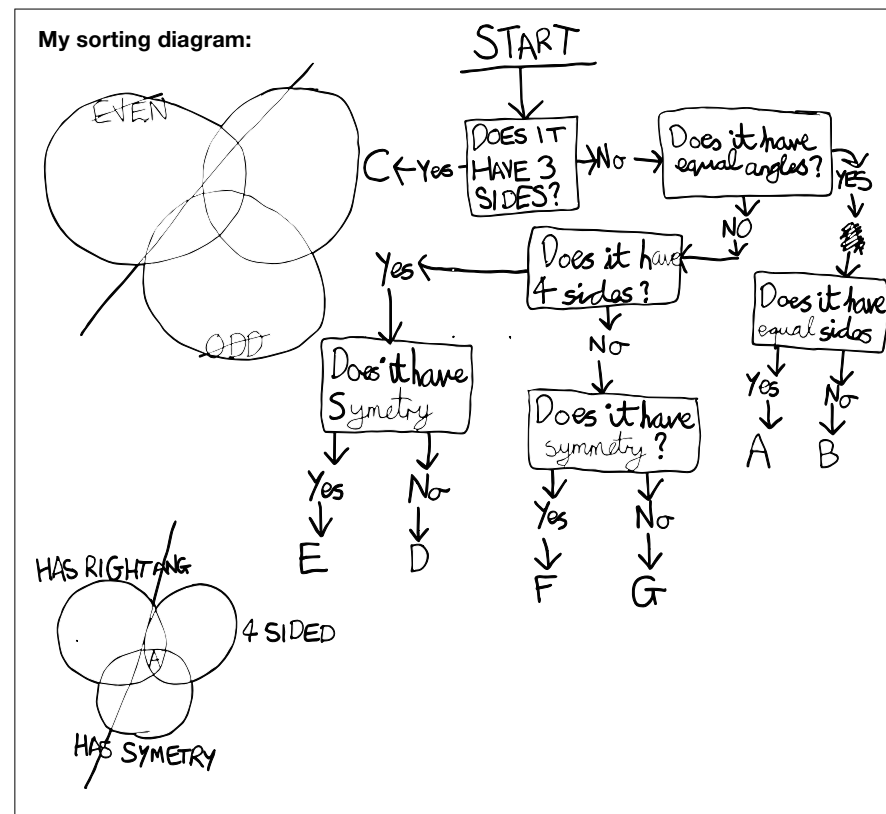 My sorting diagram:
START
EVEN
DOES IT
HAVE 3
SIDES?
Yes
C
No
Does it have
equal angles?
YES
NO
Does it have
equal sides
Yes
No
A
B
Does it have
4 sides?
Yes
No
Does it have
Symetry
Yes
No
E
D
Does it have
symmetry?
Yes
No
F
G
ODD
HAS RIGHT ANG
4 SIDED
A
HAS SYMETRY